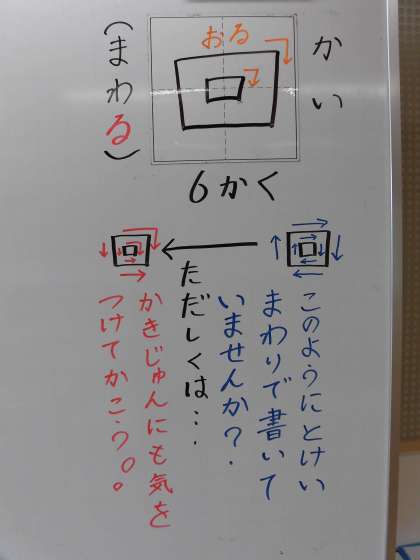 かい
おる
回
(まわる)
6かく
このようにとけい
まわりで書いて
いませんか?.
ただしくは…
かきじゅんにも気を
つけてかこう。。